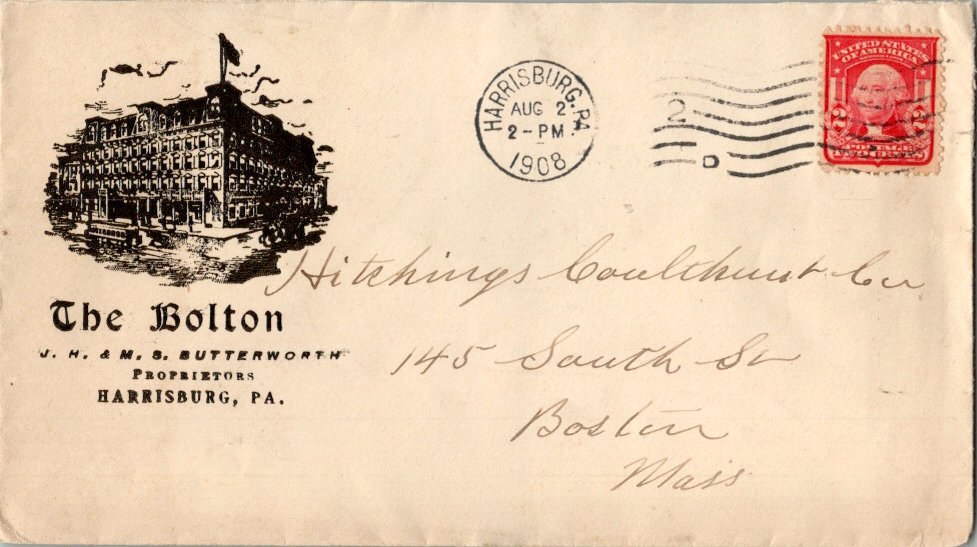 HARRISBURG, PA.
AUG 2
2 - PM
1908
2
D
UNITED STATES
OF AMERICA
2 2
POSTAGE
TWO CENTS
The Bolton
J. H. & M. S. BUTTERWORTH
PROPRIETORS
HARRISBURG, PA.
Hitchings Coulthurst Co
145 South St
Boston
Mass